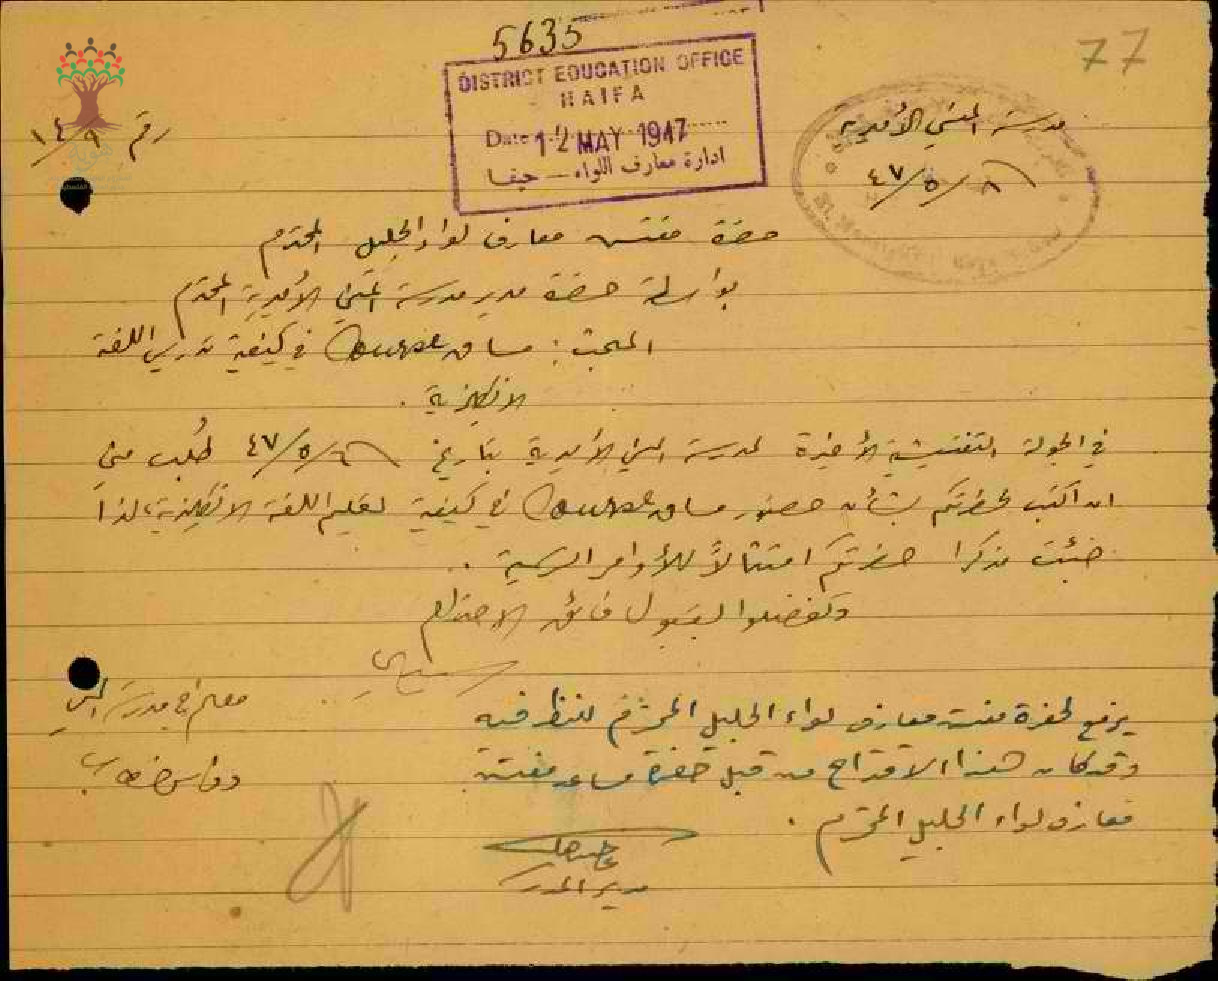 77
5635
DISTRICT EDUCATION OFFICE
HAIFA
Date 12 MAY 1947
ادارة معارف اللواء - حيفا
مدرسة الأميرية
٤٧/٥/٨
رقم ١٤/٩
حضرة مفتش معارف لواء الجليل المحترم
بواسطة حضرة مدير مدرسة الأميرية المحترم
المبحث: مساق Course في كيفية تدريس اللغة
الانكليزية.
في الجولة التفتيشية الأخيرة لمدرسة الأميرية بتاريخ ٤٧/٥/٦ طُلب مني
ان اكتب لحضرتكم بشأن حضور مساق Course في كيفية تعليم اللغة الانكليزية، لذا
جئت مذكرا حضرتكم امتثالاً للأوامر الرسمية ..
وتفضلوا بقبول فائق الاحترام
معلم في مدرسة
يرفع لحضرة مفتش معارف لواء الجليل المحترم للنظر فيه
وقد كان هذا الاقتراح من قبل حضرة مساعد مفتش
معارف لواء الجليل المحترم.
مدير المدرسة